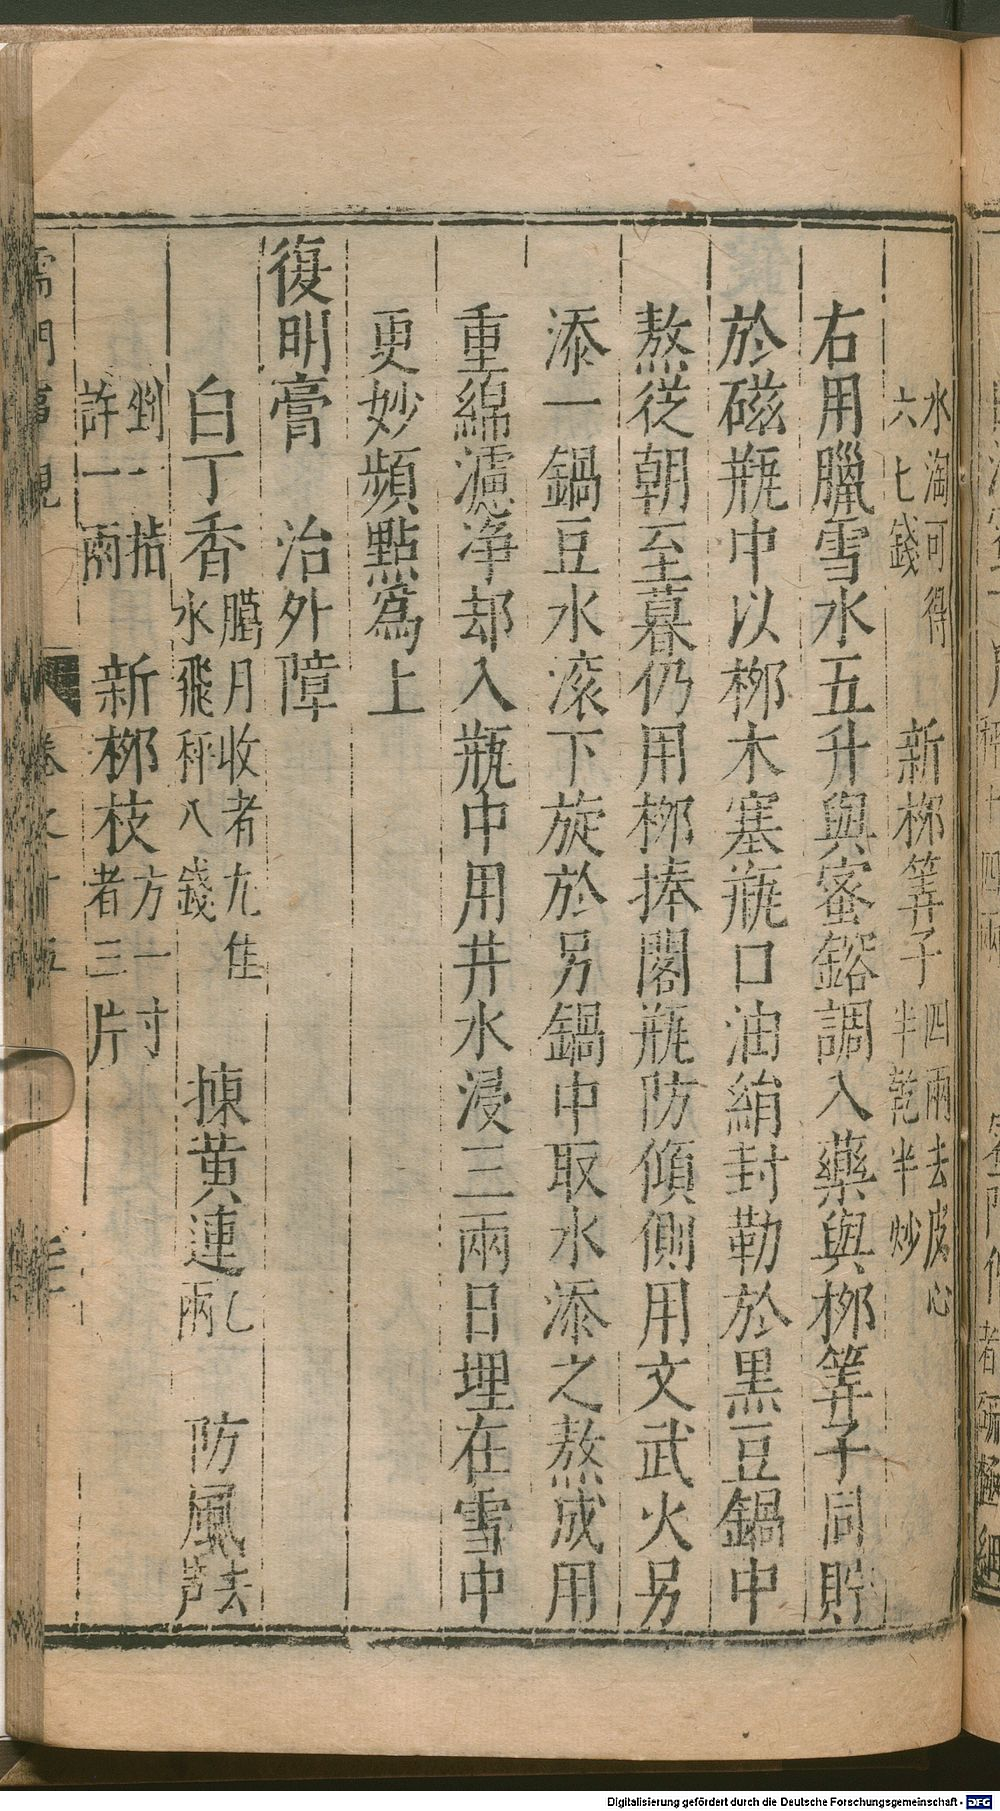 水淘可得六七錢 新栁筭子四兩去皮心半乾半炒
右用臘雪水五升與蜜鎔調入藥與栁筭子同貯
於磁瓶中以栁木塞瓶口油絹封勒於黒豆鍋中
熬從朝至暮仍用栁捧閣瓶防傾側用文武火另
添一鍋豆水滚下旋於另鍋中取水添之熬成用
重綿濾净却入瓶中用井水浸三兩日埋在雪中
更妙頻點爲上
復明膏 治外障
白丁香臈月收者尤佳水飛秤八錢 揀黄連乚兩 防風去芦
剉一指許一兩 新栁枝方一寸者三片
儒門事親 卷之十五
Digitalisierung gefördert durch die Deutsche Forschungsgemeinschaft - DFG